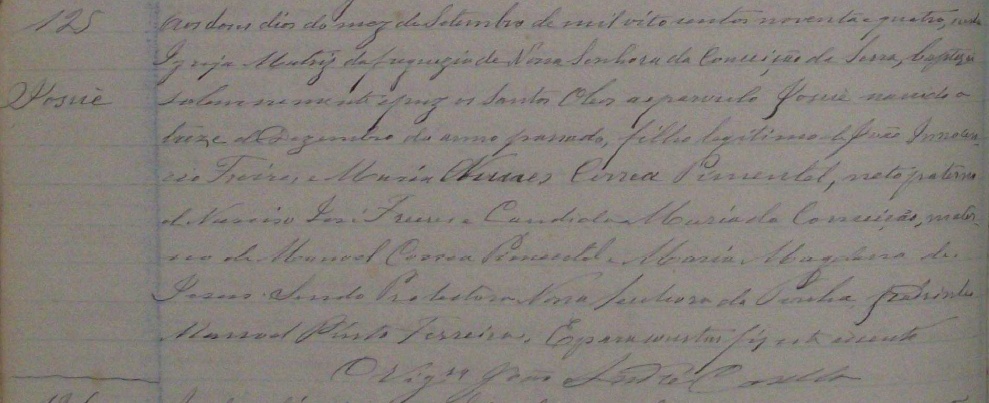 125
Aos dous dias do mez de Setembro de mil oito centos noventa e quatro, nesta
Igreja Matriz da freguezia de Nossa Senhora da Conceição da Serra, baptizei
Josué
solemnemente e puz os Santos Oleos ao parvulo Josué nascido a
treze de Dezembro do anno passado, filho legitimo de João Innocen-
cio Freire, e Maria Nunes Correa Pimentel, neto paterno
de Narciso José Freire e Candida Maria da Conceição, mater-
no de Manoel Correa Pimentel e Maria Magdalena de
Jesus. Sendo Protectora Nossa Senhora da Penha, padrinho
Manoel Pinto Ferreira. E para constar fiz este assento
O Vigrº João